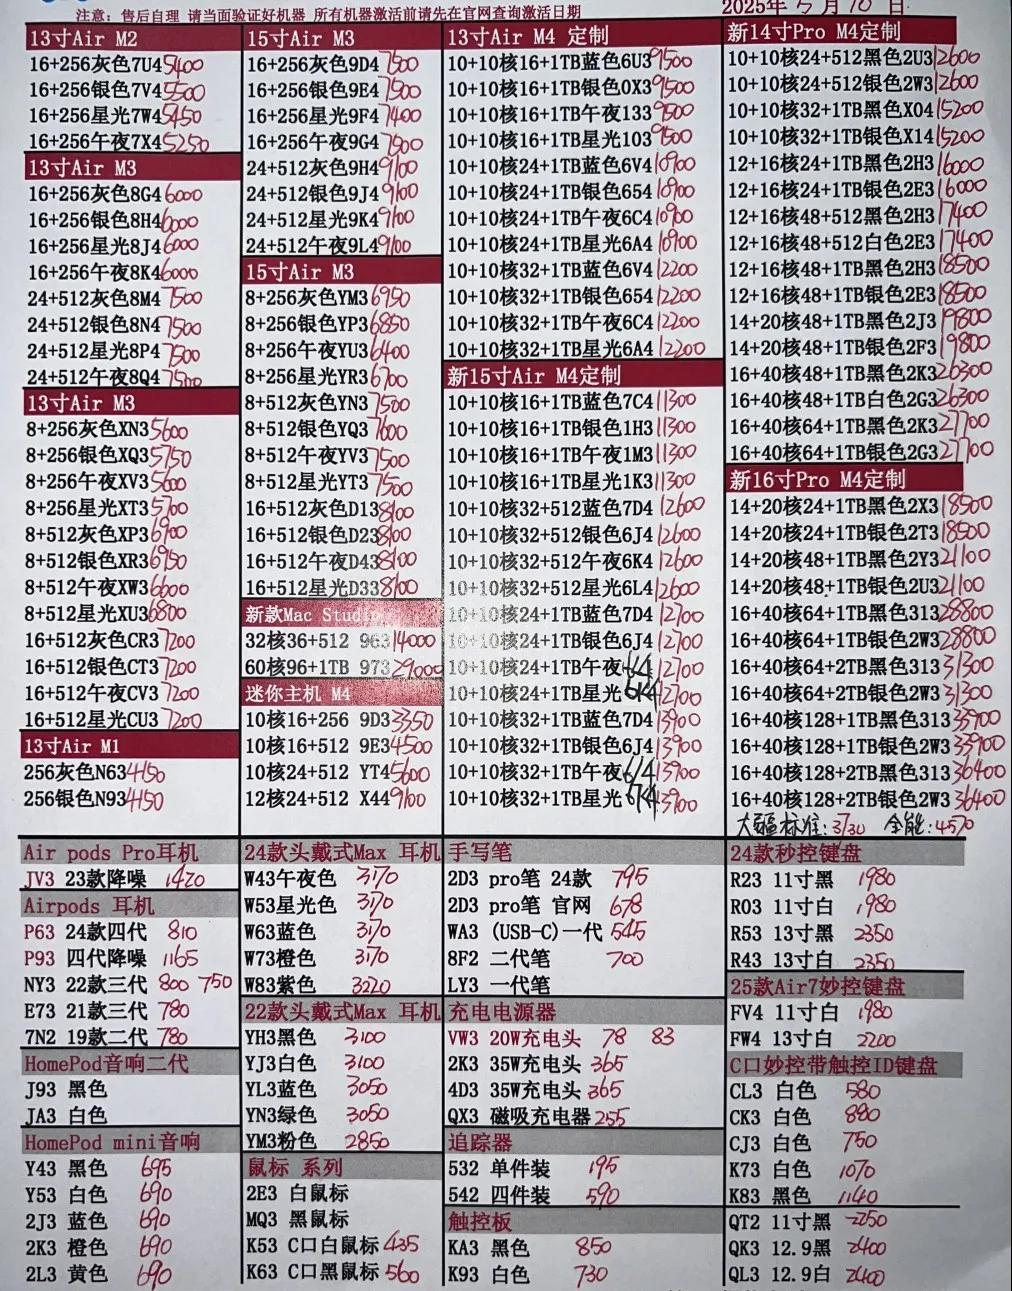 注意: 售后自理 请当面验证好机器 所有机器激活前请先在官网查询激活日期
2025年5月10日
13寸Air M2
16+256灰色7U4 5400
16+256银色7V4 5500
16+256星光7W4 5450
16+256午夜7X4 5250
13寸Air M3
16+256灰色8G4 6000
16+256银色8H4 6000
16+256星光8J4 6000
16+256午夜8K4 6000
24+512灰色8M4 7500
24+512银色8N4 7500
24+512星光8P4 7500
24+512午夜8Q4 7500
13寸Air M3
8+256灰色XN3 5600
8+256银色XQ3 5750
8+256午夜XV3 5600
8+256星光XT3 5700
8+512灰色XP3 6900
8+512银色XR3 6950
8+512午夜XW3 6600
8+512星光XU3 6800
16+512灰色CR3 7200
16+512银色CT3 7200
16+512午夜CV3 7200
16+512星光CU3 7200
13寸Air M1
256灰色N63 4150
256银色N93 4150
15寸Air M3
16+256灰色9D4 7500
16+256银色9E4 7500
16+256星光9F4 7400
16+256午夜9G4 7500
24+512灰色9H4 9100
24+512银色9J4 9100
24+512星光9K4 9100
24+512午夜9L4 9100
15寸Air M3
8+256灰色YM3 6950
8+256银色YP3 6850
8+256午夜YU3 6400
8+256星光YR3 6700
8+512灰色YN3 7500
8+512银色YQ3 7600
8+512午夜YV3 7500
8+512星光YT3 7500
16+512灰色D13 8100
16+512银色D23 8100
16+512午夜D43 8100
16+512星光D33 8100
新款Mac Studio
32核36+512 963 14000
60核96+1TB 973 29000
迷你主机 M4
10核16+256 9D3 3350
10核16+512 9E3 4500
10核24+512 YT4 5600
12核24+512 X44 9100
13寸Air M4 定制
10+10核16+1TB蓝色6U3 9500
10+10核16+1TB银色0X3 9500
10+10核16+1TB午夜133 9500
10+10核16+1TB星光103 9500
10+10核24+1TB蓝色6V4 10900
10+10核24+1TB银色654 10900
10+10核24+1TB午夜6C4 10900
10+10核24+1TB星光6A4 10900
10+10核32+1TB蓝色6V4 12200
10+10核32+1TB银色654 12200
10+10核32+1TB午夜6C4 12200
10+10核32+1TB星光6A4 12200
新15寸Air M4定制
10+10核16+1TB蓝色7C4 11300
10+10核16+1TB银色1H3 11300
10+10核16+1TB午夜1M3 11300
10+10核16+1TB星光1K3 11300
10+10核32+512蓝色7D4 12600
10+10核32+512银色6J4 12600
10+10核32+512午夜6K4 12600
10+10核32+512星光6L4 12600
10+10核24+1TB蓝色7D4 12700
10+10核24+1TB银色6J4 12700
10+10核24+1TB午夜 12700
10+10核24+1TB星光 12700
10+10核32+1TB蓝色7D4 13900
10+10核32+1TB银色6J4 13900
10+10核32+1TB午夜 13900
10+10核32+1TB星光 13900
新14寸Pro M4定制
10+10核24+512黑色2U3 12600
10+10核24+512银色2W3 12600
10+10核32+1TB黑色X04 15200
10+10核32+1TB银色X14 15200
12+16核24+1TB黑色2H3 16000
12+16核24+1TB银色2E3 16000
12+16核48+512黑色2H3 17400
12+16核48+512白色2E3 17400
12+16核48+1TB黑色2H3 18500
12+16核48+1TB银色2E3 18500
14+20核48+1TB黑色2J3 19800
14+20核48+1TB银色2F3 19800
16+40核48+1TB黑色2K3 26300
16+40核48+1TB白色2G3 26300
16+40核64+1TB黑色2K3 27700
16+40核64+1TB银色2G3 27700
新16寸Pro M4定制
14+20核24+1TB黑色2X3 18500
14+20核24+1TB银色2T3 18500
14+20核48+1TB黑色2Y3 21100
14+20核48+1TB银色2U3 21100
16+40核64+1TB黑色313 28800
16+40核64+1TB银色2W3 28800
16+40核64+2TB黑色313 31300
16+40核64+2TB银色2W3 31300
16+40核128+1TB黑色313 33900
16+40核128+1TB银色2W3 33900
16+40核128+2TB黑色313 36400
16+40核128+2TB银色2W3 36400
大疆标准:3730 全能:4570
Air pods Pro耳机
JV3 23款降噪 1420
Airpods 耳机
P63 24款四代 810
P93 四代降噪 1165
NY3 22款三代 800 750
E73 21款三代 780
7N2 19款二代 780
HomePod音响二代
J93 黑色
JA3 白色
HomePod mini音响
Y43 黑色 695
Y53 白色 690
2J3 蓝色 690
2K3 橙色 690
2L3 黄色 690
24款头戴式Max 耳机
W43午夜色 3170
W53星光色 3170
W63蓝色 3170
W73橙色 3170
W83紫色 3220
22款头戴式Max 耳机
YH3黑色 3100
YJ3白色 3100
YL3蓝色 3050
YN3绿色 3050
YM3粉色 2850
鼠标 系列
2E3 白鼠标
MQ3 黑鼠标
K53 C口白鼠标 435
K63 C口黑鼠标 560
手写笔
2D3 pro笔 24款 795
2D3 pro笔 官网 678
WA3 (USB-C)一代 545
8F2 二代笔 700
LY3 一代笔
充电电源器
VW3 20W充电头 78 83
2K3 35W充电头 365
4D3 35W充电头 365
QX3 磁吸充电器 255
追踪器
532 单件装 195
542 四件装 590
触控板
KA3 黑色 850
K93 白色 730
24款秒控键盘
R23 11寸黑 1980
R03 11寸白 1980
R53 13寸黑 2350
R43 13寸白 2350
25款Air7妙控键盘
FV4 11寸白 1980
FW4 13寸白 2200
C口妙控带触控ID键盘
CL3 白色 580
CK3 白色 890
CJ3 白色 750
K73 白色 1070
K83 黑色 1140
QT2 11寸黑 2250
QK3 12.9黑 2400
QL3 12.9白 2400